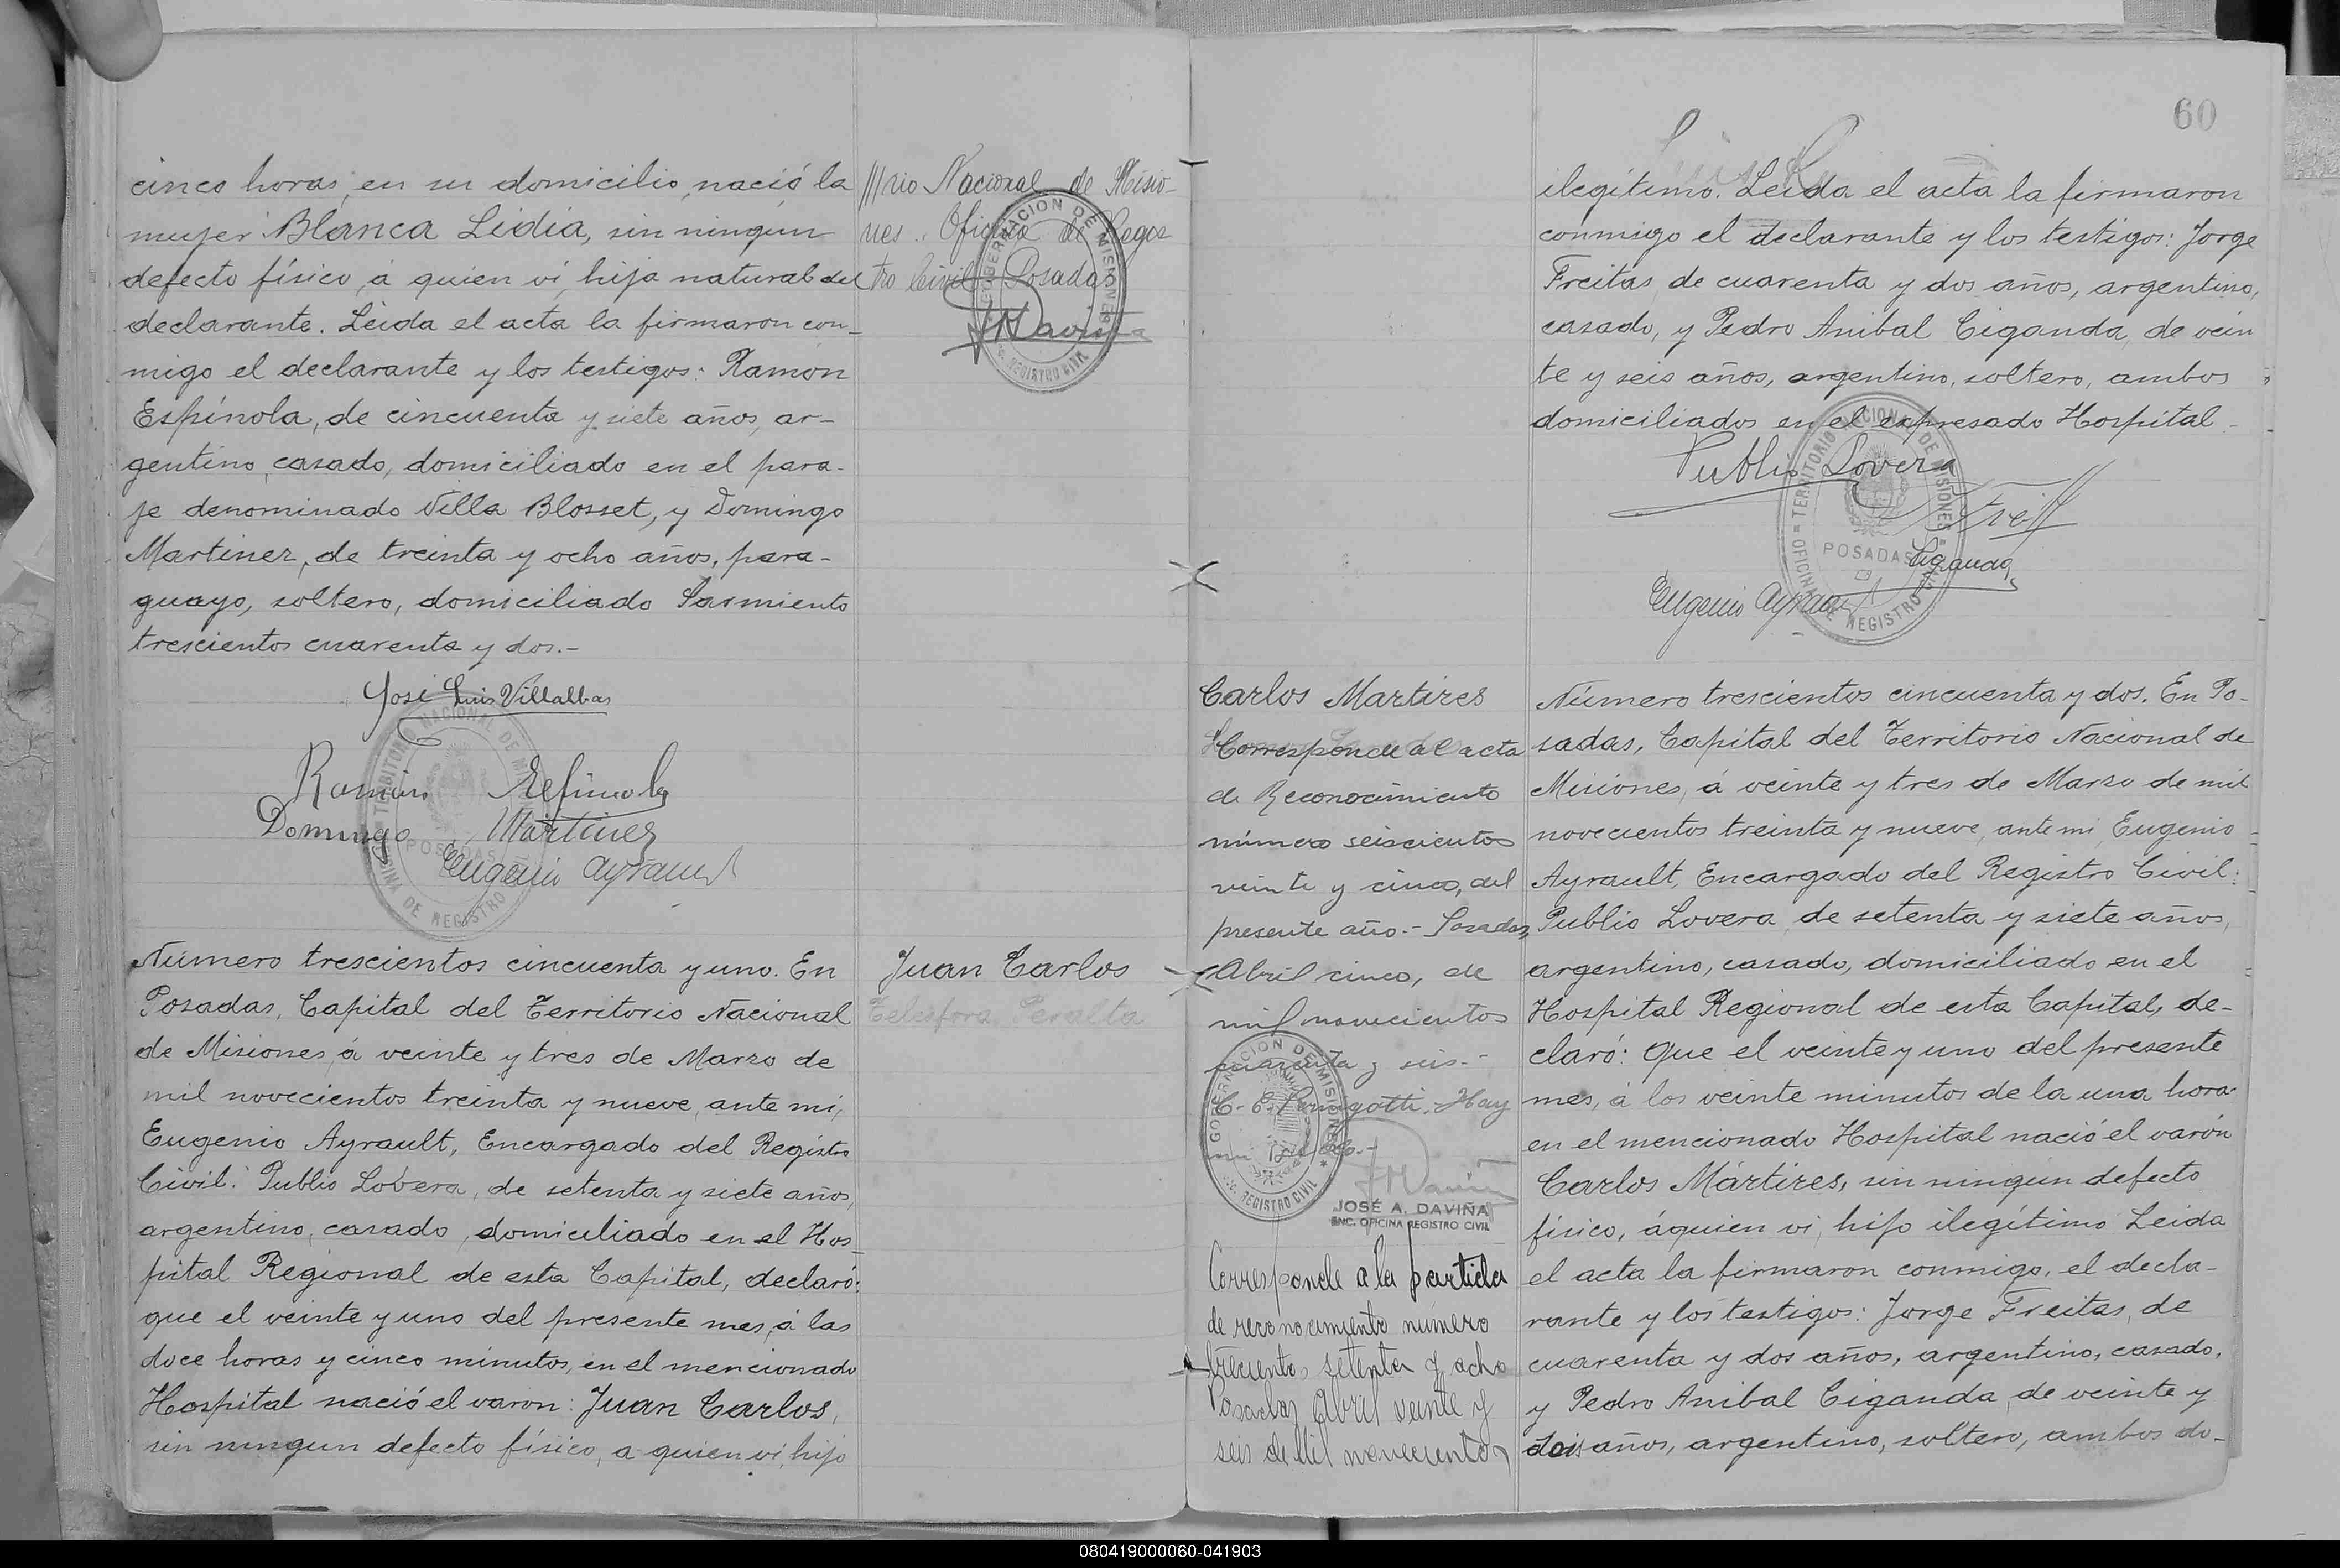 cinco horas, en su domicilio, nació la
mujer Blanca Lidia, sin ningun
defecto físico, á quien ví, hija natural del
declarante. Leida el acta la firmaron con-
migo el declarante y los testigos: Ramón
Espínola, de cincuenta y siete años, ar-
gentino, casado, domiciliado en el para-
je denominado Villa Blosset, y Domingo
Martinez, de treinta y ocho años, para-
guayo, soltero, domiciliado Sarmiento
trescientos cuarenta y dos.-
José Luis Villalbas
Ramón Espinola
Domingo Martinez
Eugenio Ayrault
TERRITORIO NACIONAL DE
POSADAS
OFICINA DE REGISTRO
Número trescientos cincuenta y uno. En
Posadas, Capital del Territorio Nacional
de Misiones, á veinte y tres de Marzo de
mil novecientos treinta y nueve, ante mí,
Eugenio Ayrault, Encargado del Registro
Civil: Publio Lovera, de setenta y siete años,
argentino, casado, domiciliado en el Hos-
pital Regional de esta Capital, declaró:
que el veinte y uno del presente mes, á las
doce horas y cinco minutos, en el mencionado
Hospital nació el varon: Juan Carlos,
sin ningun defecto físico, a quien ví, hijo
///rio Nacional de Misio-
nes. Oficina de Regis
tro Civil Posadas
GOBERNACION DE MISIONES
REGISTRO CIVIL
JADaviña
Juan Carlos
Telesfora Peralta
60
ilegítimo. Leida el acta la firmaron
conmigo el declarante y los testigos: Jorge
Freitas de cuarenta y dos años, argentino,
casado, y Pedro Anibal Ciganda, de vein
te y seis años, argentino, soltero, ambos
domiciliados en el expresado Hospital-
Publio Lovera
Ciganda
Eugenio Ayrault
TERRITORIO NACIONAL DE MISIONES
POSADAS
OFICINA DE REGISTRO
Carlos Martires
Corresponde al acta
de Reconocimiento
número seiscientos
veinte y cinco, del
presente año.- Posadas,
Abril cinco, de
mil novecientos
cuarenta y seis.-
Hay
un sello.-
GOBERNACION DE MISIONES
REGISTRO CIVIL
JOSÉ A. DAVIÑA
ENC. OFICINA REGISTRO CIVIL
Corresponde a la partida
de reconocimiento número
trecientos setenta y ocho
Posadas Abril veinte y
seis de Mil novecientos
Número trescientos cincuenta y dos. En Po-
sadas, Capital del Territorio Nacional de
Misiones, á veinte y tres de Marzo de mil
novecientos treinta y nueve, ante mi, Eugenio
Ayrault, Encargado del Registro Civil:
Publio Lovera, de setenta y siete años,
argentino, casado, domiciliado en el
Hospital Regional de esta Capital, de-
claró: Que el veinte y uno del presente
mes, á los veinte minutos de la una hora
en el mencionado Hospital nació el varón
Carlos Mártires, sin ningun defecto
físico, áquien vi, hijo ilegítimo Leida
el acta la firmaron conmigo, el decla-
rante y los testigos: Jorge Freitas, de
cuarenta y dos años, argentino, casado,
y Pedro Anibal Ciganda, de veinte y
años, argentino, soltero, ambos do-
080419000060-041903